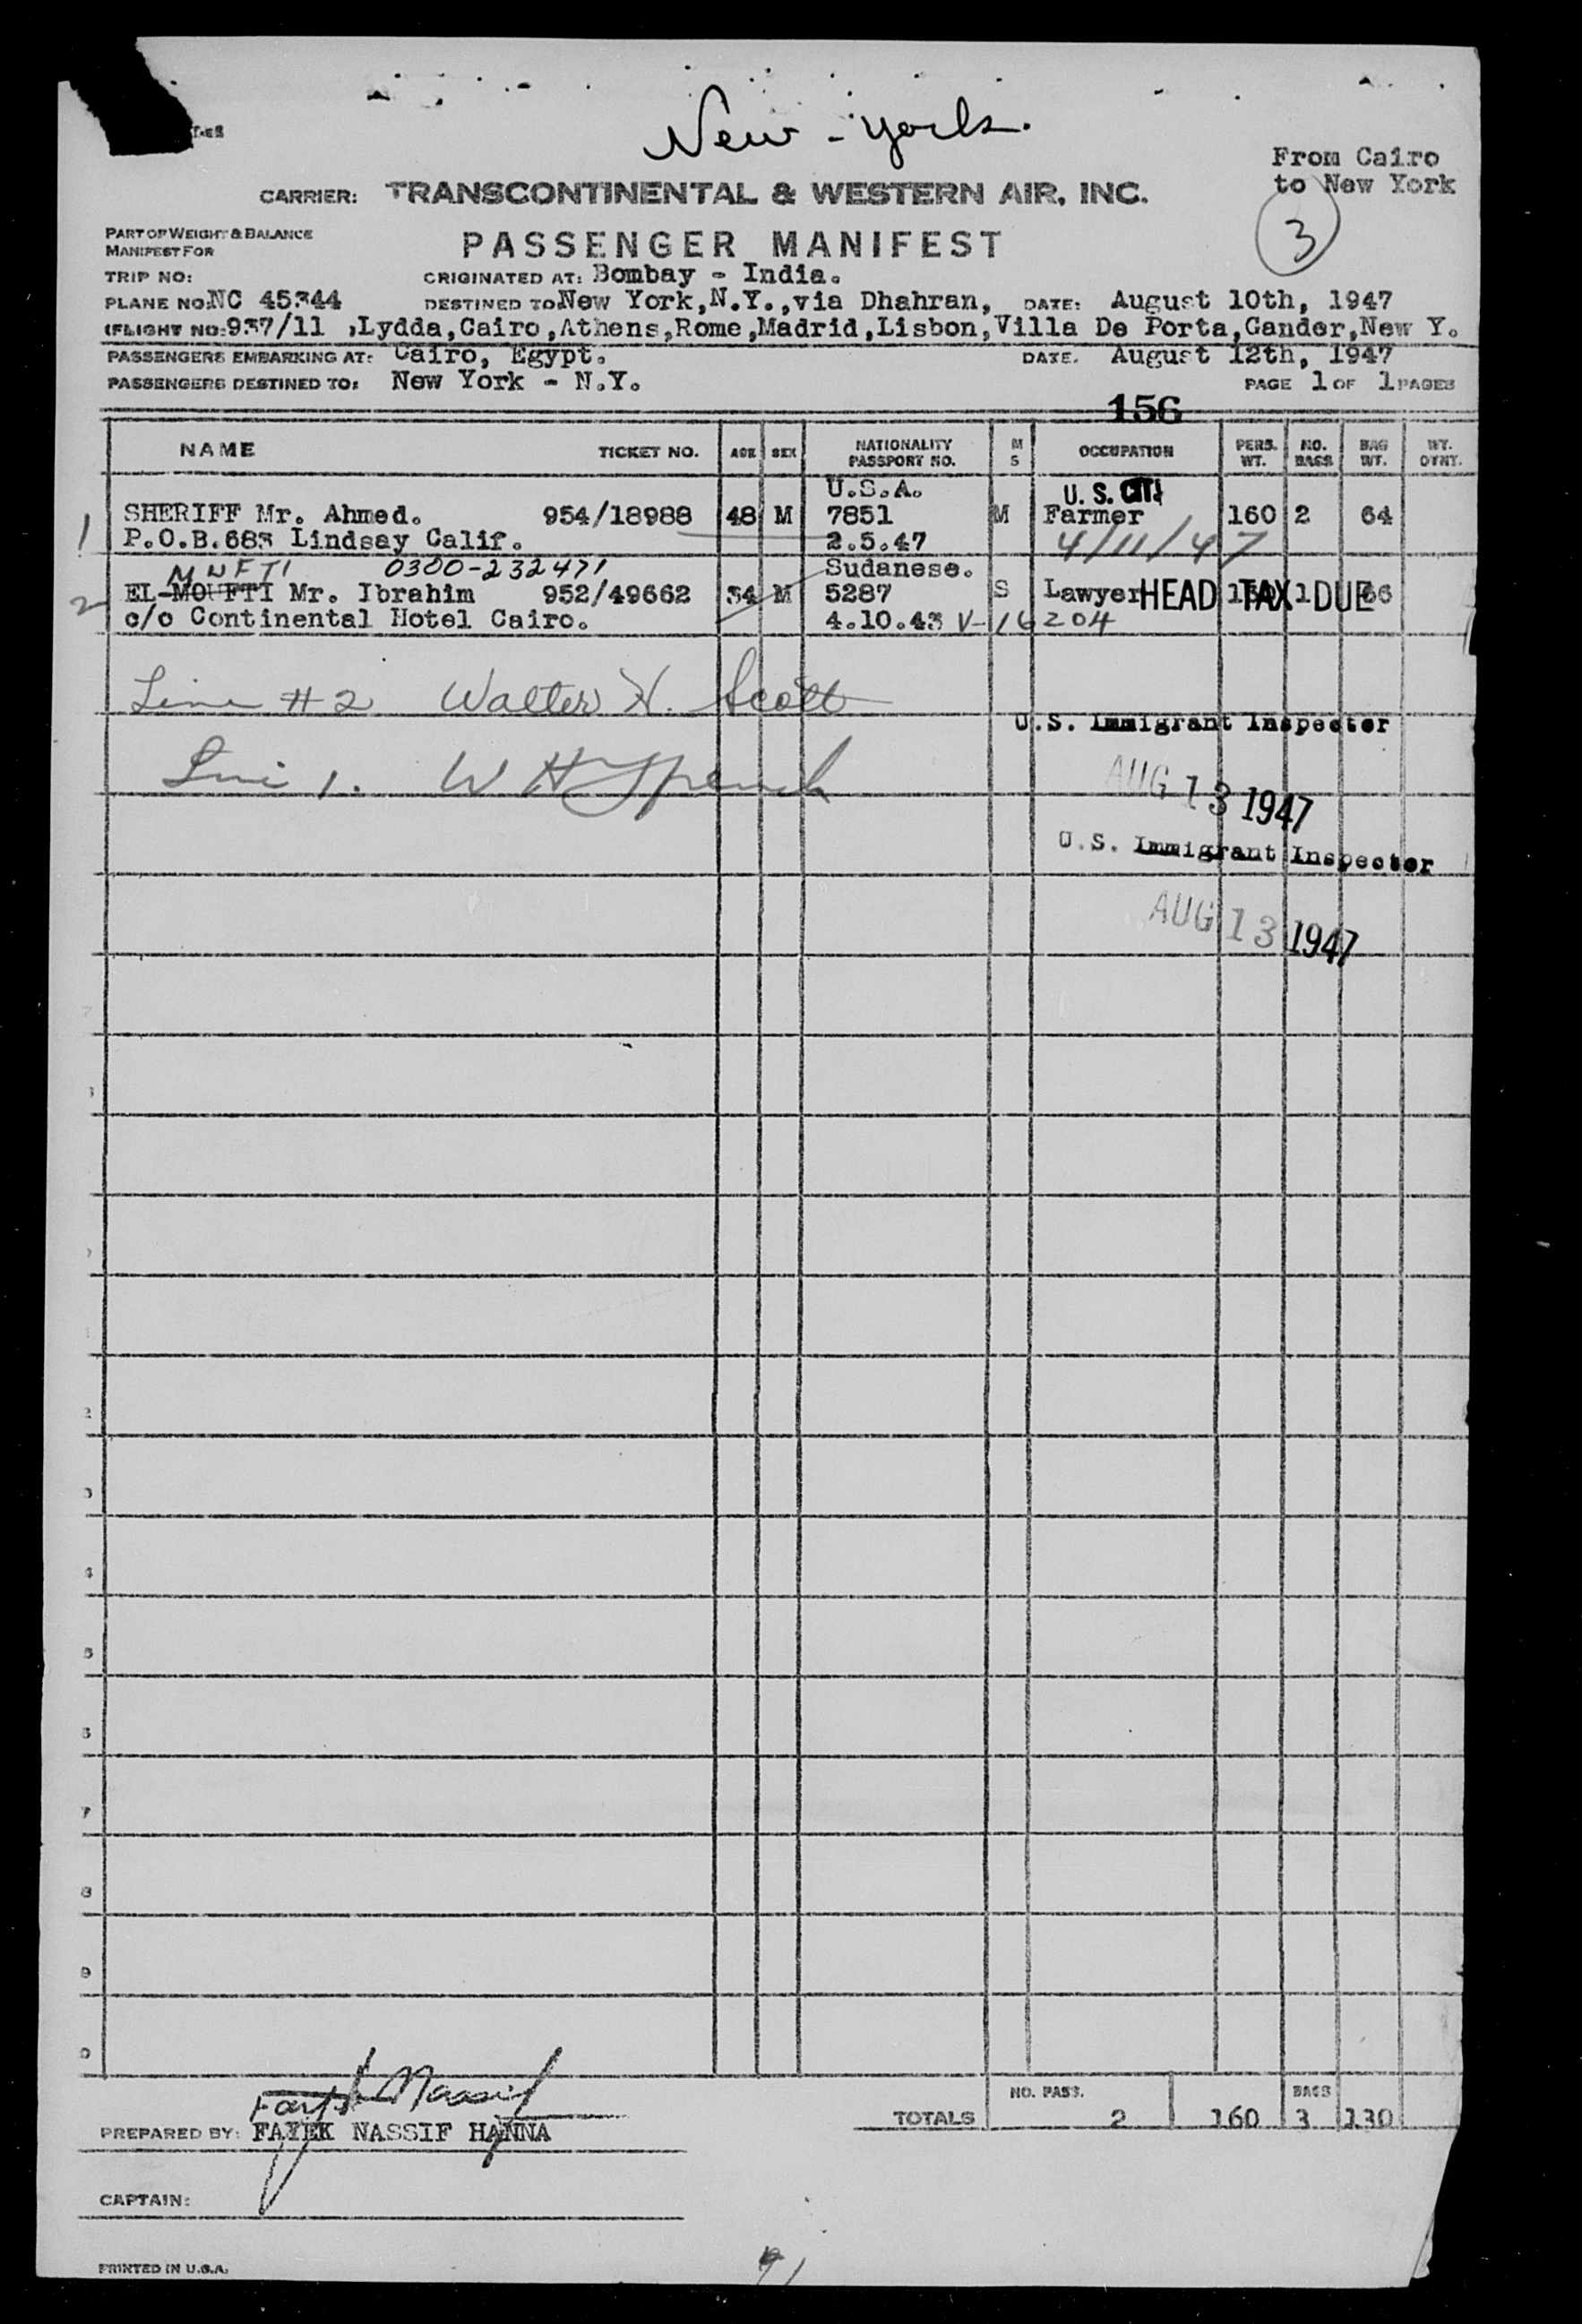 New-York.
From Cairo
to New York
3
CARRIER: TRANSCONTINENTAL & WESTERN AIR, INC.
PART OF WEIGHT & BALANCE
MANIFEST FOR
PASSENGER MANIFEST
TRIP NO: ORIGINATED AT: Bombay - India.
PLANE NO: NC 45344 DESTINED TO New York, N.Y., via Dhahran, DATE: August 10th, 1947
FLIGHT NO: 937/11 ,Lydda,Cairo,Athens,Rome,Madrid,Lisbon,Villa De Porta,Gander,New Y.
PASSENGERS EMBARKING AT: Cairo, Egypt. DATE. August 12th, 1947
PASSENGERS DESTINED TO: New York - N.Y. PAGE 1 OF 1 PAGES
156
NAME TICKET NO. AGE SEX NATIONALITY PASSPORT NO. M S OCCUPATION PERS. WT. NO. BAGS BAG WT. WT.
U.S.A. U.S. CIT
1 SHERIFF Mr. Ahmed. 954/18988 48 M 7851 M Farmer 160 2 64
P.O.B.683 Lindsay Calif. 2.5.47 4/11/47
MUFTI 0300-232471 Sudanese.
2 EL-MOUFTI Mr. Ibrahim 952/49662 34 M 5287 S Lawyer HEAD TAX DUE 1 66
c/o Continental Hotel Cairo. 4.10.43 V-16204
Line #2 Walter H. Scott
U.S. Immigrant Inspector
Line 1. W H
AUG 13 1947
U.S. Immigrant Inspector
AUG 13 1947
2
3
4
5
6
7
8
9
0
Nassif
NO. PASS. BAGS
TOTALS 2 160 3 130
PREPARED BY: FAYEK NASSIF HANNA
CAPTAIN:
PRINTED IN U.S.A.